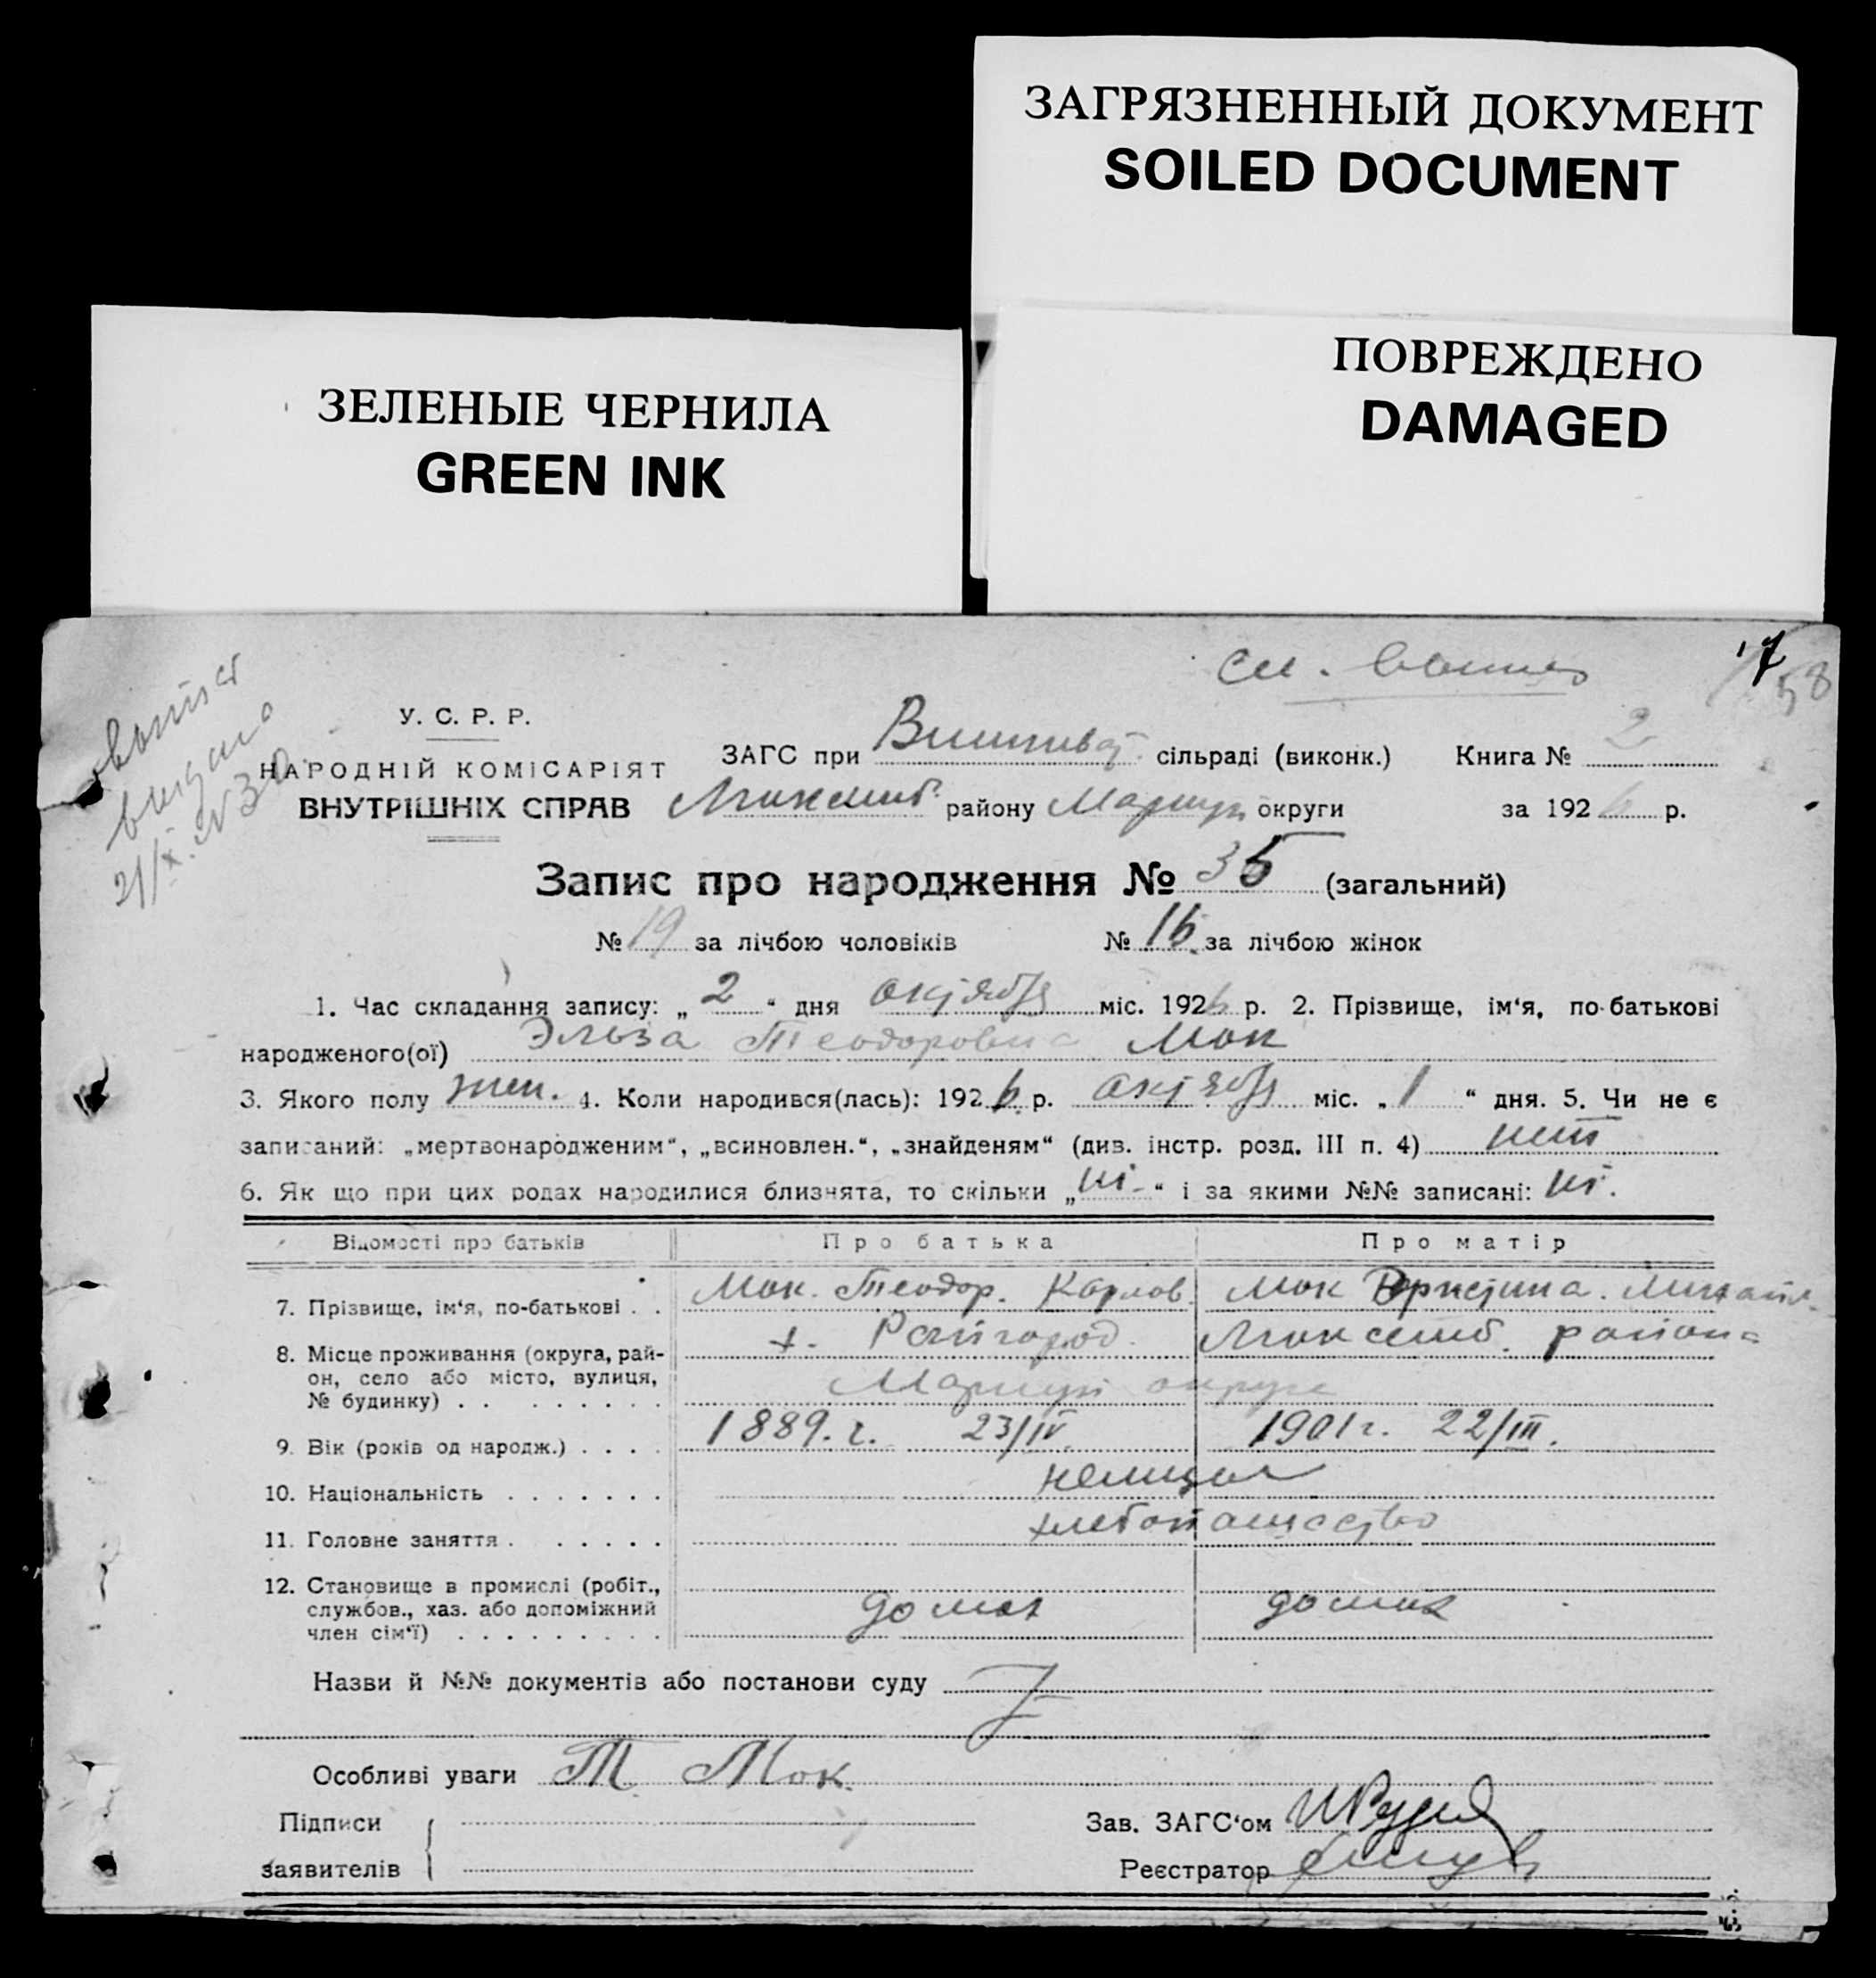 ЗАГРЯЗНЕННЫЙ ДОКУМЕНТ
SOILED DOCUMENT
ПОВРЕЖДЕНО
DAMAGED
ЗЕЛЕНЫЕ ЧЕРНИЛА
GREEN INK
17
58
У. С. Р. Р.
НАРОДНІЙ КОМІСАРІЯТ
ВНУТРІШНІХ СПРАВ
выдано
ЗАГС при сільраді (виконк.) Книга № 2
району Мариуп округи за 1926 р.
Запис про народження № 35 (загальний)
№ 19 за лічбою чоловіків № 16 за лічбою жінок
1. Час складання запису: „ 2 “ дня октября міс. 1926 р. 2. Прізвище, ім‘я, по-батькові
народженого(ої) Эльза Теодоровна Мок
3. Якого полу жен. 4. Коли народився(лась): 1926 р. октября міс. „ 1 “ дня. 5. Чи не є
записаний: „мертвонародженим“, „всиновлен.“, „знайденям“ (див. інстр. розд. III п. 4) нет
6. Як що при цих родах народилися близнята, то скільки „ ні “ і за якими №№ записані: ні.
Відомості про батьків Про батька Про матір
7. Прізвище, ім‘я, по-батькові . . Мок. Теодор. Карлов. Мок Михайл.
8. Місце проживання (округа, рай- х. Райгород. района
он, село або місто, вулиця, Мариуп округа
№ будинку) . . . . . . . . .
9. Вік (років од народж.) . . . . 1889. г. 23/IV. 1901 г. 22/III.
10. Національність . . . . . . . немцы
11. Головне заняття . . . . . . хлебопашество
12. Становище в промислі (робіт.,
службов., хаз. або допоміжний домох домох
член сім‘ї) . . . . . . . . .
Назви й №№ документів або постанови суду
Особливі уваги Т. Мок.
Підписи Зав. ЗАГС‘ом
заявителів Реєстратор